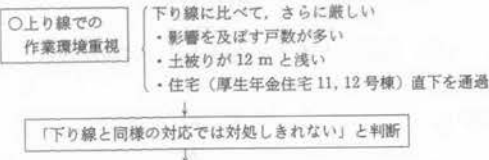 ○上り線での
作業環境重視
下り線に比べて,さらに厳しい
・影響を及ぼす戸数が多い
・土被りが12 mと浅い
・住宅(厚生年金住宅11, 12号棟)直下を通過
「下り線と同様の対応では対処しきれない」と判断